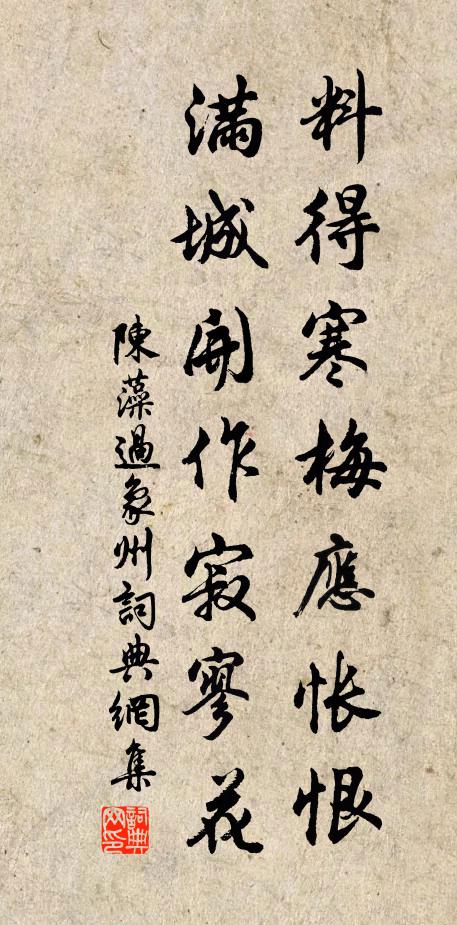 料得寒梅應悵恨
滿城開作寂寥花
陳藻過象州詞典網集
詞典网印